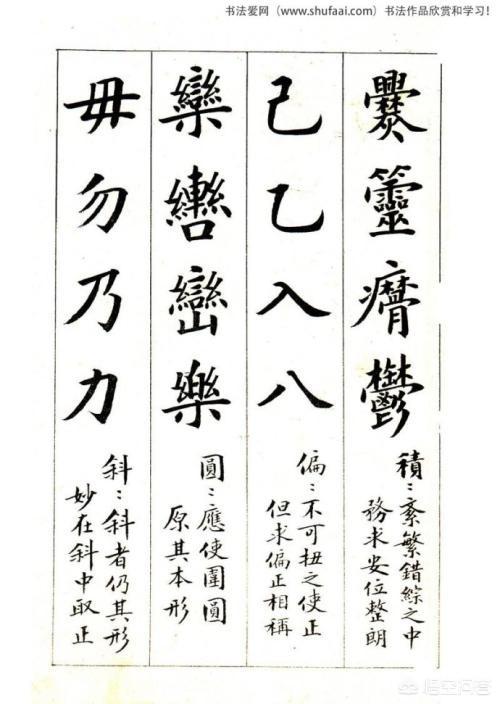 书法爱网（www.shufaai.com）书法作品欣赏和学习！
爨靈癠鬱
積：紊繁錯綜之中
務求安位整朗
己乙入八
偏：不可扭之使正
但求偏正相稱
欒轡巒樂
圓：應使圍圓
原其本形
毋勿乃力
斜：斜者仍其形
妙在斜中取正
悟空问答